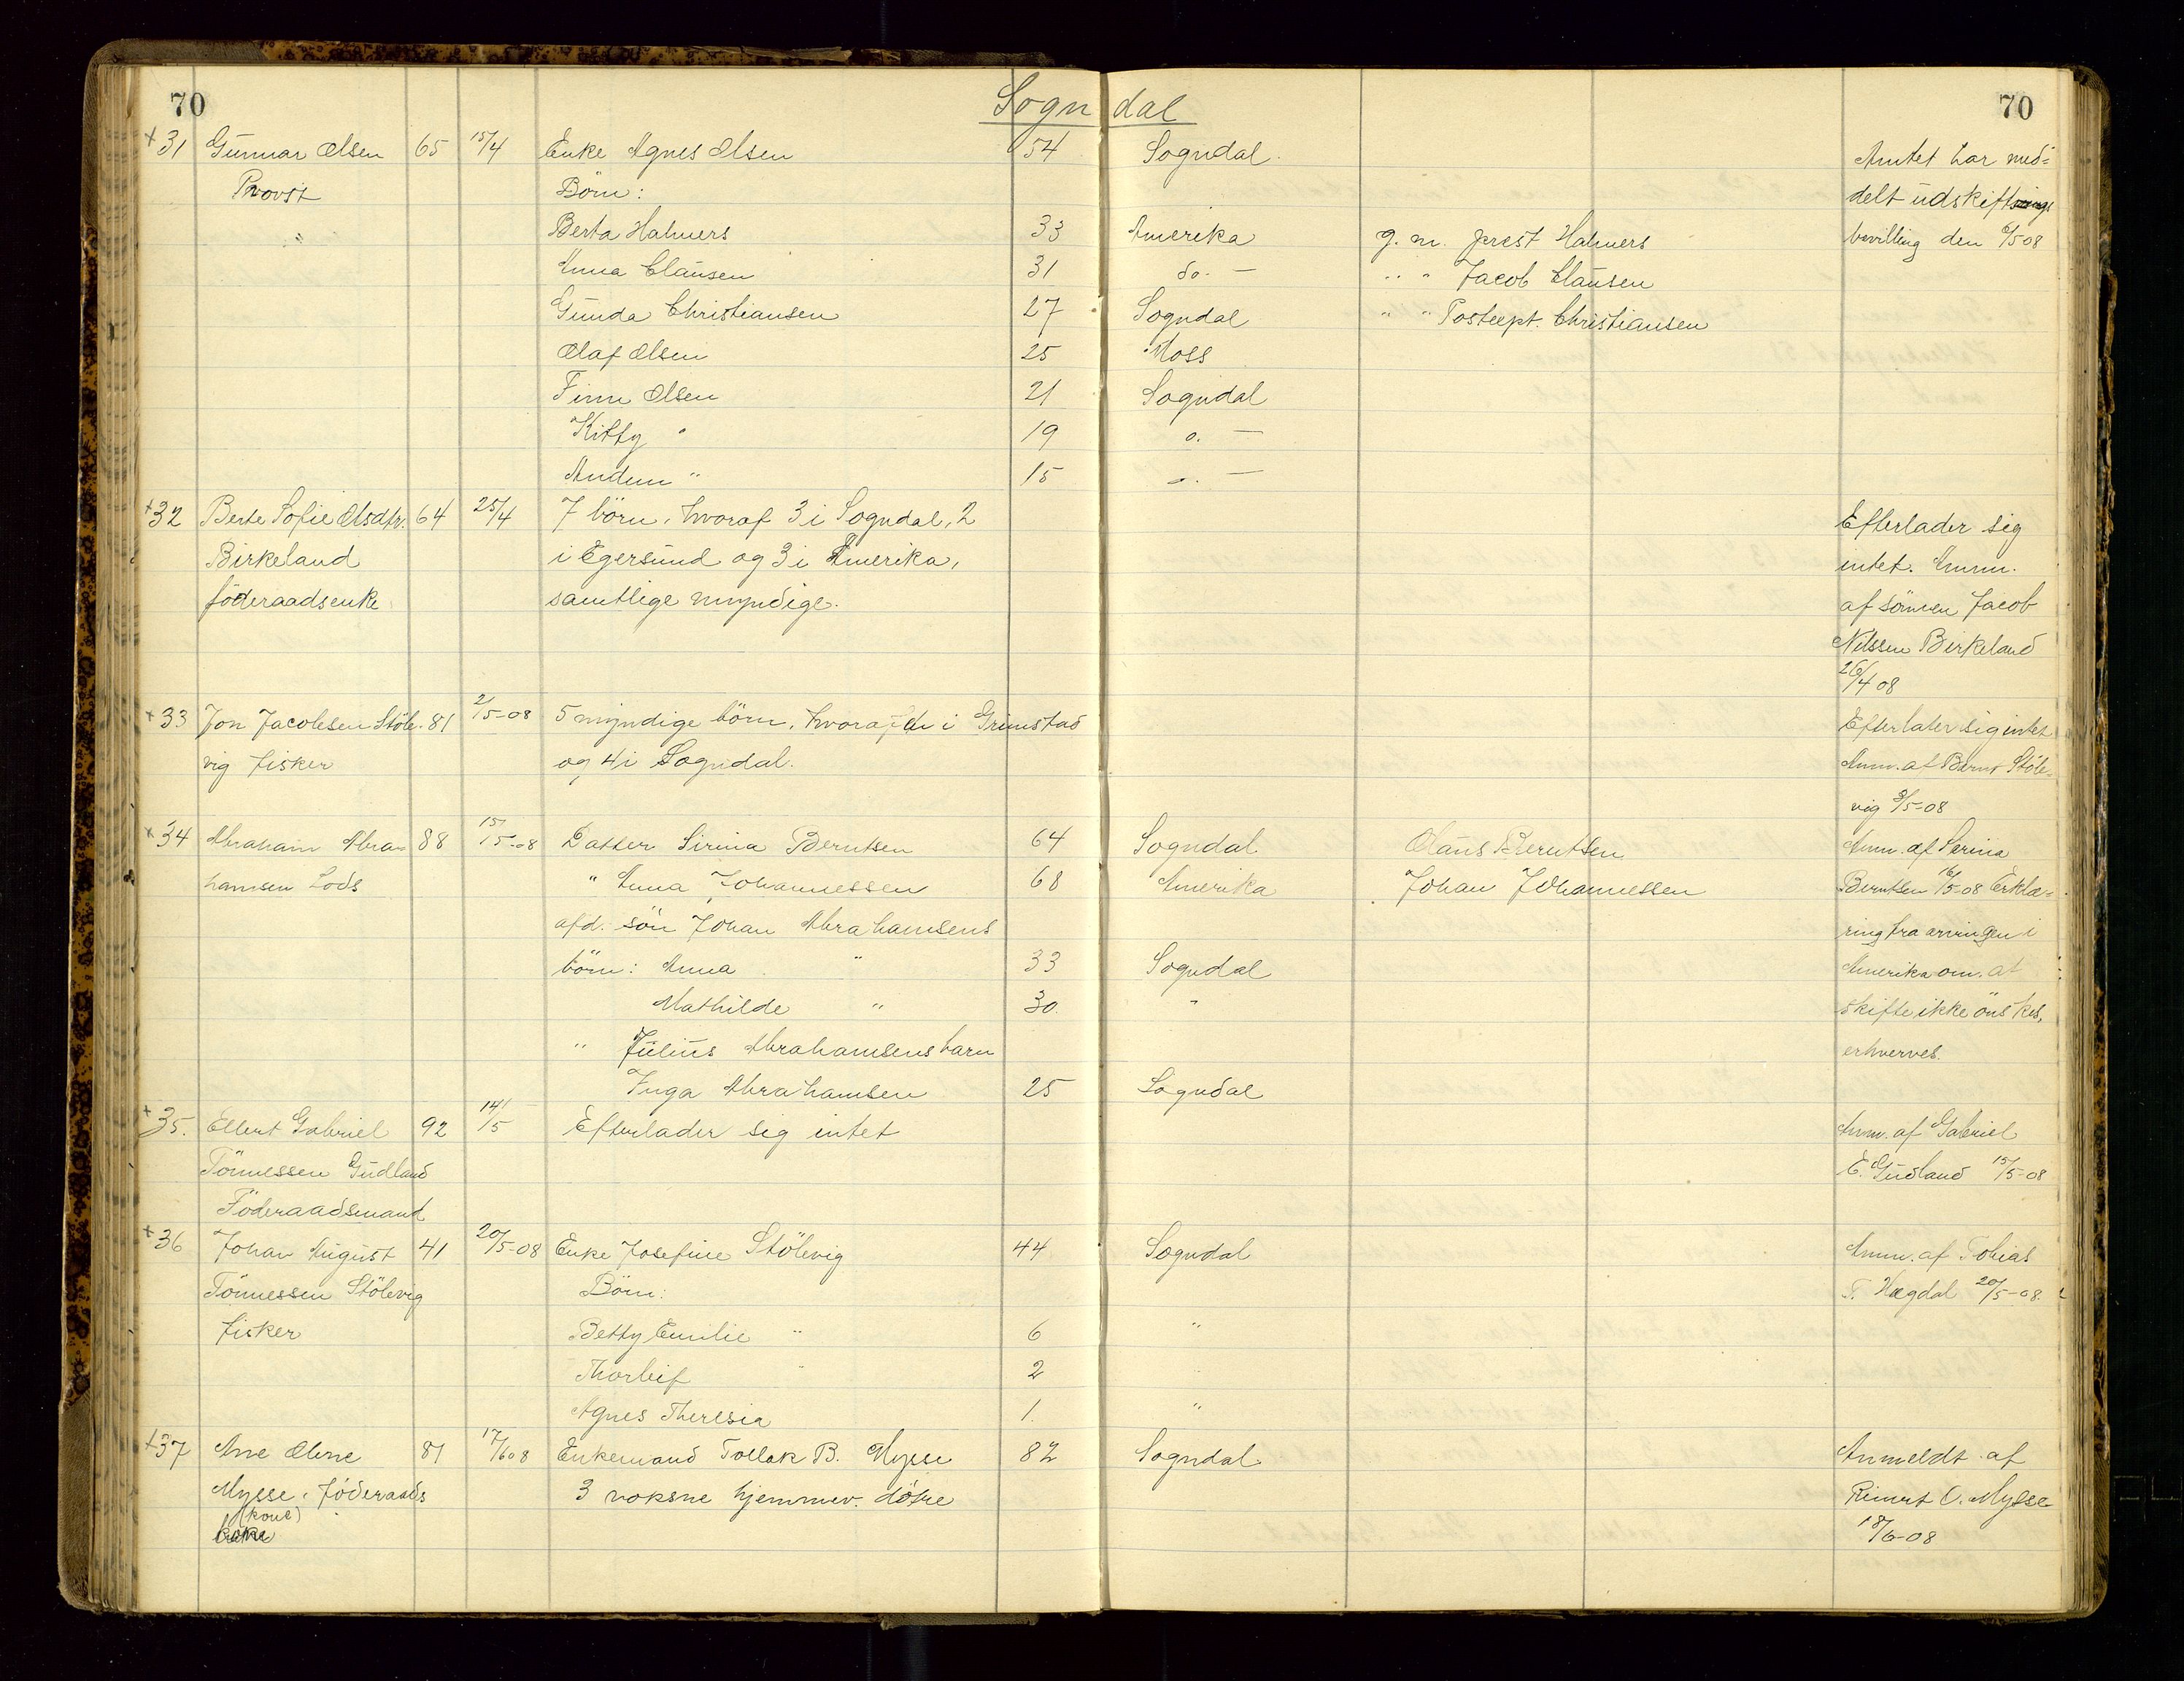 70
Sogndal
70
+31 Gunnar Olsen 65 15/4 Enke Agnes Olsen 54 Sogndal. Amtet har med-
Provst Börn: delt udskiftnings
Berta Halmers 33 Amerika g. m. prest Halmers bevilling den 6/5 08
Anna Clausen 31 do. — " " Jacob Clausen
Gunda Christiansen 27 Sogndal " " Postexpt. Christiansen
Olaf Olsen 25 Moss
Finn Olsen 21 Sogndal
Kitty " 19 o. —
Audun " 15 o. —
+32 Berte Sofie Olsdtr. 64 25/4 7 börn, hvoraf 3 i Sogndal, 2 Efterlader sig
Birkeland i Egersund og 3 i Amerika, intet. Anm.
föderaadsenke samtlige myndige. af sönnen Jacob
Nilssen Birkeland
26/4 08
+33 Jon Jacobsen Stöle- 81 2/5-08 5 myndige börn, hvoraf en i Grimstad Efterlater sig intet
vig fisker og 4 i Sogndal. Anm. af Bernt Stöle-
vig 3/5-08
+34 Abraham Abra- 88 15/5-08 Datter Sirina Berntsen 64 Sogndal Olaus Berntsen Anm. af Serina
hamsen Lods " Anna Johannessen 68 Amerika Johan Johannessen Berntsen 16/5-08 Erklæ-
afd. sön Johan Abrahamsens ring fra arvingen i
börn: Anna " 33 Sogndal Amerika om at
Mathilde " 30. " skifte ikke önskes,
" Julius Abrahamsens barn erhverves.
Inga Abrahamsen 25 Sogndal
+35. Ellert Gabriel 92 14/5 Efterlader sig intet Anm. af Gabriel
Tönnessen Gudland E. Gudland 15/5-08
Föderaadsmand
+36 Johan August 41 20/5-08 Enke Josefine Stölevig 44 Sogndal Anm. af Tobias
Tönnessen Stölevig Börn: T. Hægdal 20/5-08.
fisker Betty Emilie " 6 "
Thorleif " 2
Agnes Theresia 1. "
+37 Ane Olene 81 17/6 08 Enkemand Tollak B. Mysse 82 Sogndal Anmeldt af
Mysse, föderaads 3 voksne hjemmev. döttre Reinert O. Mysse
(kone) 18/6-08